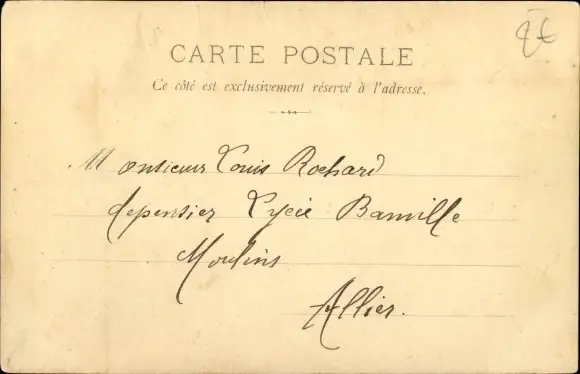 8€
CARTE POSTALE
Ce côté est exclusivement réservé à l'adresse.
Monsieur Louis Rochard
depensier Lycée Banville
Moulins
Allier.